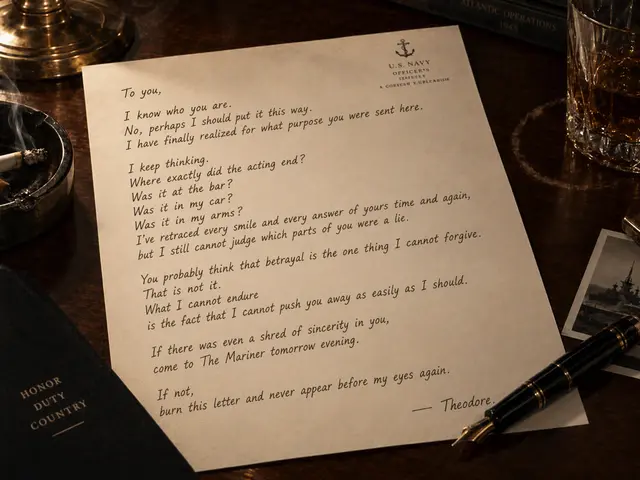 ATLANTIC OPERATIONS
U.S. NAVY
OFFICER'S
To you,
I know who you are.
No, perhaps I should put it this way.
I have finally realized for what purpose you were sent here.
I keep thinking.
Where exactly did the acting end?
Was it at the bar?
Was it in my car?
Was it in my arms?
I've retraced every smile and every answer of yours time and again,
but I still cannot judge which parts of you were a lie.
You probably think that betrayal is the one thing I cannot forgive.
That is not it.
What I cannot endure
is the fact that I cannot push you away as easily as I should.
If there was even a shred of sincerity in you,
come to The Mariner tomorrow evening.
If not,
burn this letter and never appear before my eyes again.
— Theodore.
HONOR
DUTY
COUNTRY